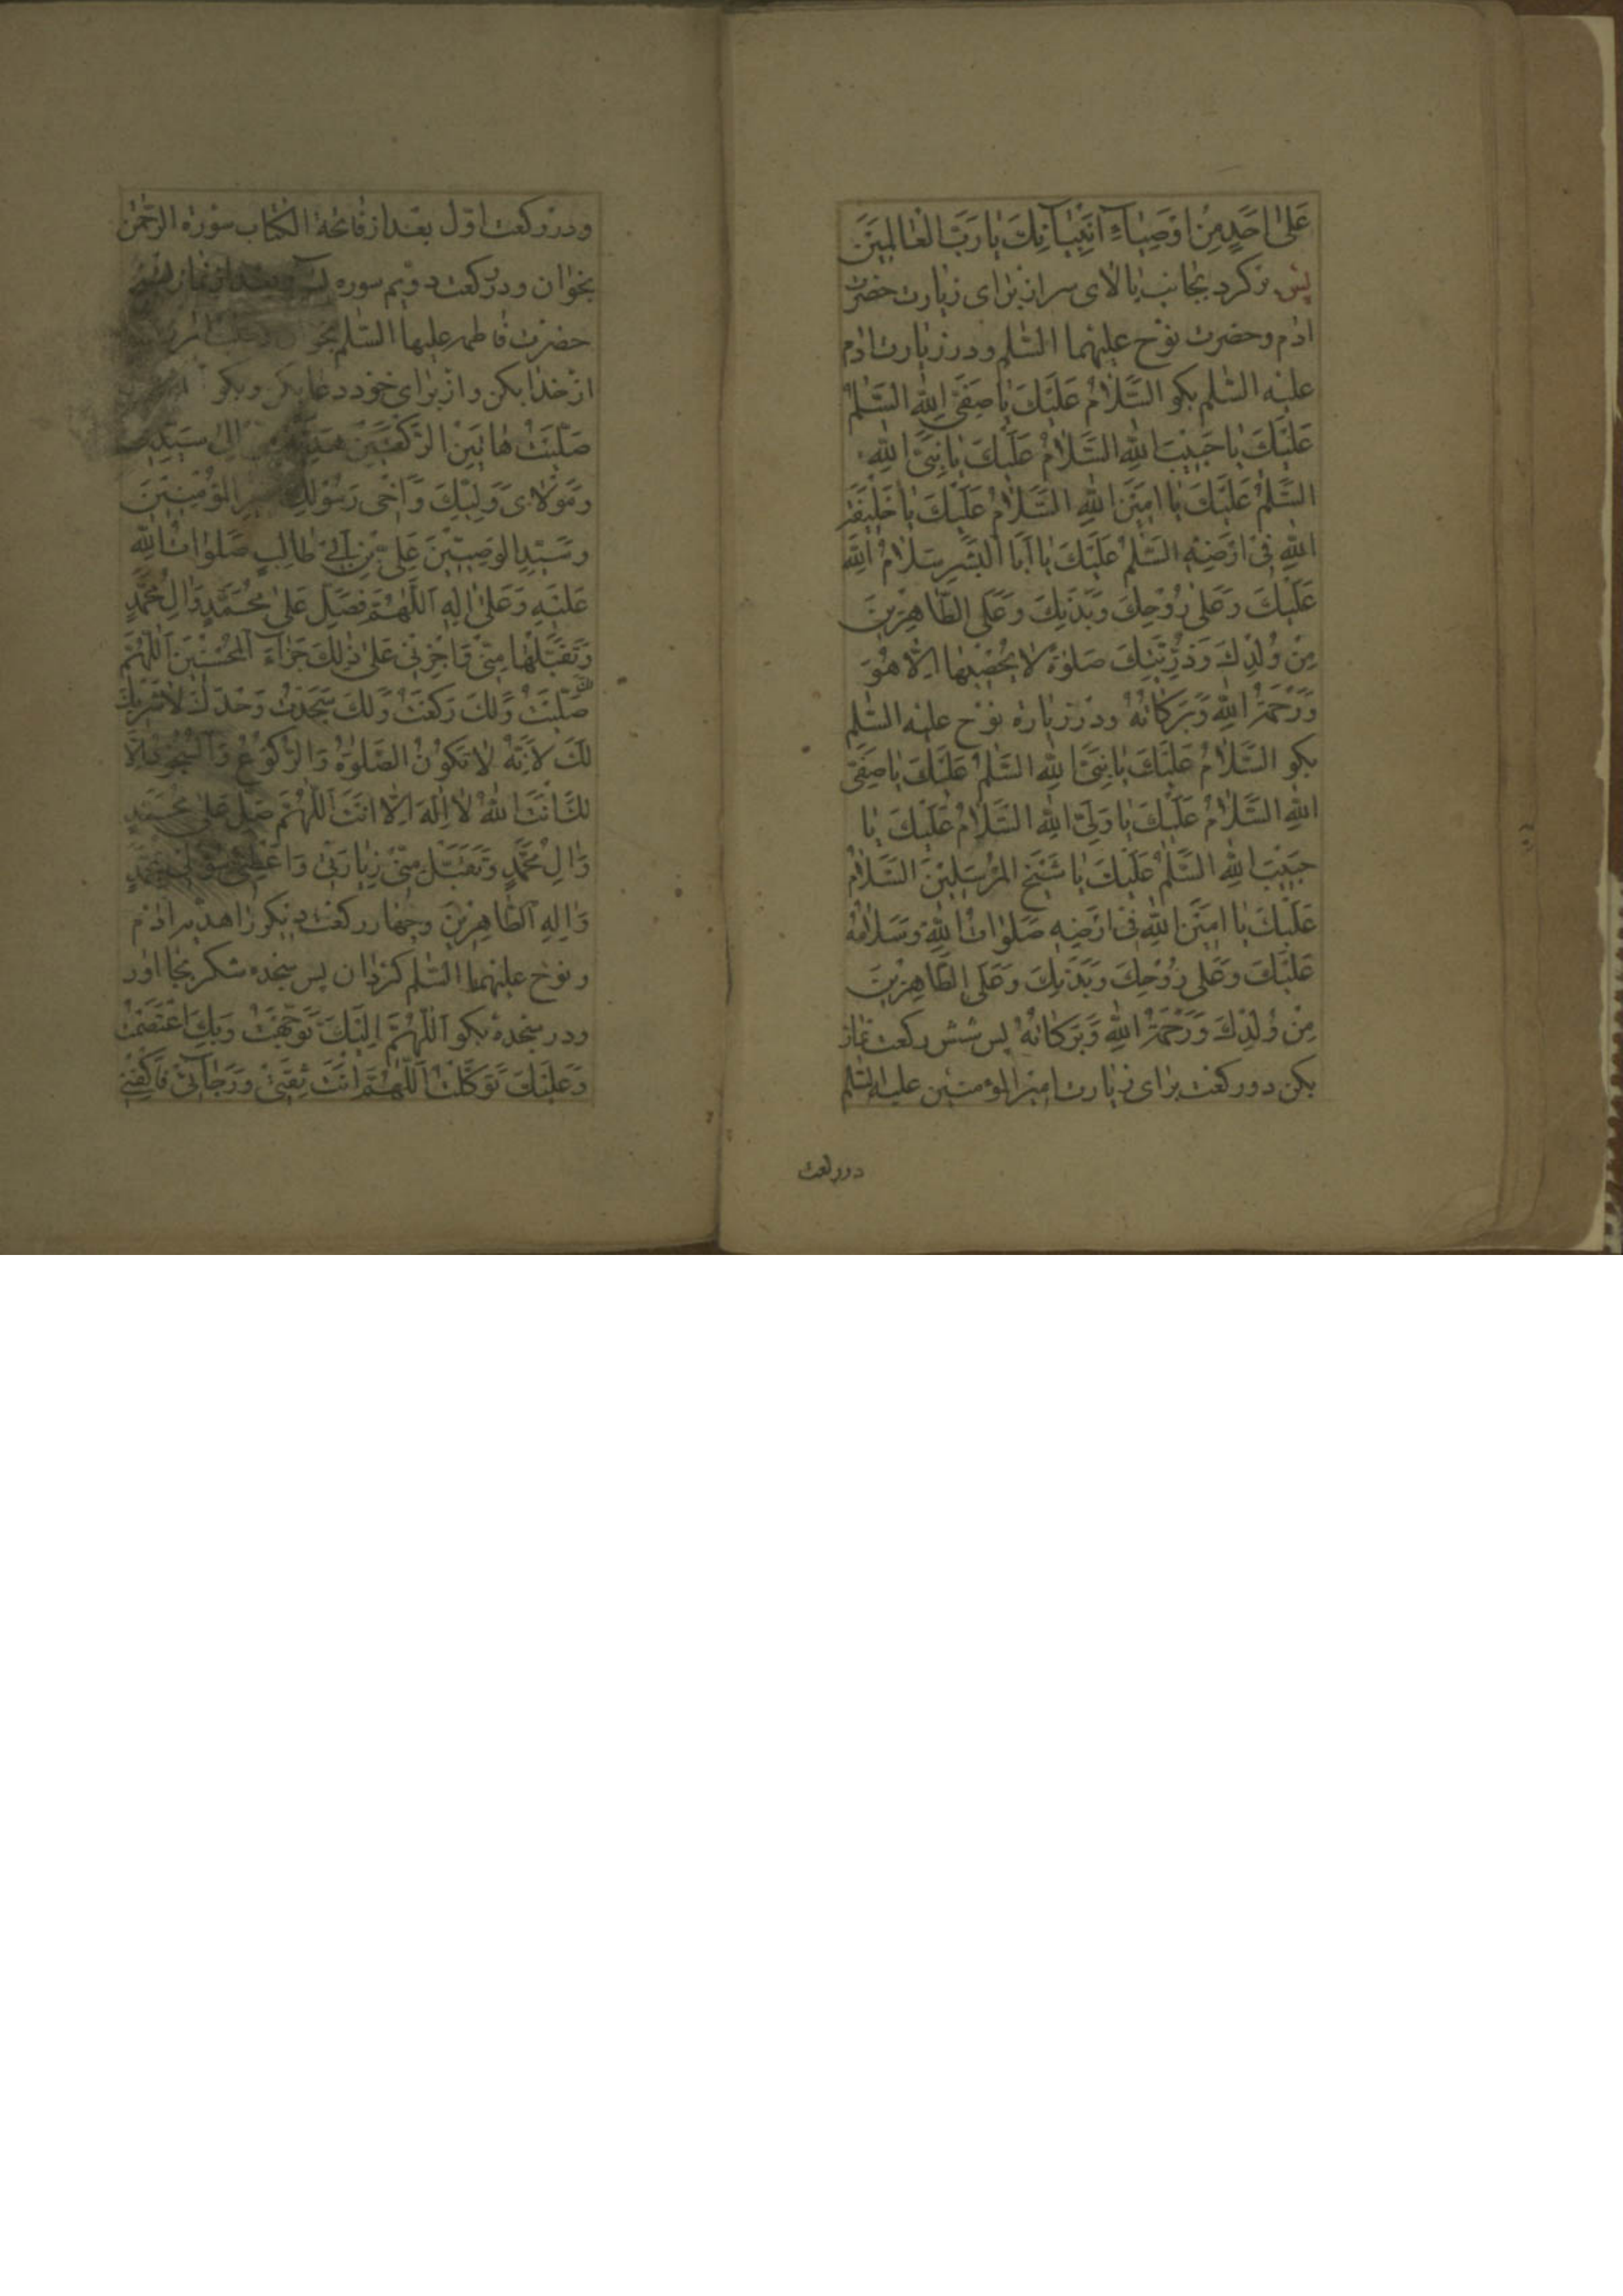 عَلىٰ اَحَدٍ مِنْ اَوْصِيٰآءِ اَنْبِيٰآئِكَ يٰا رَبَّ الْعٰالَمِينَ
پس برگرد بجانب بالای سر از برای زیارت حضرت
ادم و حضرت نوح علیهما السّلم و در زیارت ادم
علیه السّلم بکو السَّلٰامُ عَلَيْكَ يٰا صَفِىَّ اللهِ السَّلٰمُ
عَلَيْكَ يٰا حَبِيْبَ اللهِ السَّلٰامُ عَلَيْكَ يٰا نَبِىَّ اللهِ
السَّلٰمُ عَلَيْكَ يٰا اَمِيْنَ اللهِ السَّلٰامُ عَلَيْكَ يٰا خَلِيْفَةَ
اللهِ فىْ اَرْضِهِ السَّلٰمُ عَلَيْكَ يٰا اَبَا الْبَشَرِ سَلٰامُ اللهِ
عَلَيْكَ وَعَلىٰ رُوْحِكَ وَبَدَنِكَ وَعَلَى الطّٰاهِرِيْنَ
مِنْ وُلْدِكَ وَذُرِّيَّتِكَ صَلٰوةً لٰا يُحْصِيْهٰا اِلّٰا هُوَ
وَرَحْمَةُ اللهِ وَبَرَكٰاتُهُ و در زیارة نوح علیه السّلم
بکو السَّلٰامُ عَلَيْكَ يٰا نَبِىَّ اللهِ السَّلٰمُ عَلَيْكَ يٰا صَفِىَّ
اللهِ السَّلٰامُ عَلَيْكَ يٰا وَلِىَّ اللهِ السَّلٰامُ عَلَيْكَ يٰا
حَبِيْبَ اللهِ السَّلٰمُ عَلَيْكَ يٰا شَيْخَ الْمُرْسَلِيْنَ السَّلٰامُ
عَلَيْكَ يٰا اَمِيْنَ اللهِ فىْ اَرْضِهِ صَلَوٰاتُ اللهِ وَسَلٰامُهُ
عَلَيْكَ وَعَلىٰ رُوْحِكَ وَبَدَنِكَ وَعَلَى الطّٰاهِرِيْنَ
مِنْ وُلْدِكَ وَرَحْمَةُ اللهِ وَبَرَكٰاتُهُ پس شش رکعت نماز
بکن دو رکعت برای زیارت امیر المؤمنین علیه السّلم
دو رکعت
و در رکعت اوّل بعد از فاتحة الکتاب سوره الرّحمٰن
بخوان و در رکعت دویم سوره یس و بعد از نماز تسبیح
حضرت فاطمه علیها السّلم بخوان و طلب امرزش
از خدا بکن و از برای خود دعا بکن و بکو
صَلَّيْتُ هٰاتَيْنِ الرَّكْعَتَيْنِ هَدِيَّةً اِلىٰ سَيِّدِىْ
وَمَوْلٰاىَ وَلِيِّكَ وَاَخِى رَسُوْلِكَ اَمِيْرِ الْمُؤْمِنِيْنَ
وَسَيِّدِ الْوَصِيِّيْنَ عَلِىِّ بْنِ اَبِىْ طٰالِبٍ صَلَوٰاتُ اللهِ
عَلَيْهِ وَعَلىٰ اٰلِهِ اَللّٰهُمَّ فَصَلِّ عَلىٰ مُحَمَّدٍ وَاٰلِ مُحَمَّدٍ
وَتَقَبَّلْهٰا مِنّىْ وَاجْزِنىْ عَلىٰ ذٰلِكَ جَزٰآءَ الْمُحْسِنِيْنَ اَللّٰهُمَّ
لَكَ صَلَّيْتُ وَلَكَ رَكَعْتُ وَلَكَ سَجَدْتُ وَحْدَكَ لٰا شَرِيْكَ
لَكَ لِاَنَّهُ لٰا تَكُوْنُ الصَّلٰوةُ وَالرُّكُوْعُ وَالسُّجُوْدُ اِلّٰا
لَكَ اَنْتَ اللهُ لٰا اِلٰهَ اِلّٰا اَنْتَ اَللّٰهُمَّ صَلِّ عَلىٰ مُحَمَّدٍ
وَاٰلِ مُحَمَّدٍ وَتَقَبَّلْ مِنّىْ زِيٰارَتىْ وَاَعْطِنىْ سُؤْلىْ بِمُحَمَّدٍ
وَاٰلِهِ الطّٰاهِرِيْنَ و چهار رکعت دیکر را هدیه ادم
و نوح علیهما السّلم کردان پس سجده شکر بجا اور
و در سجده بکو اَللّٰهُمَّ اِلَيْكَ تَوَجَّهْتُ وَبِكَ اعْتَصَمْتُ
وَعَلَيْكَ تَوَكَّلْتُ اَللّٰهُمَّ اَنْتَ ثِقَتىْ وَرَجٰآئىْ فَاكْفِنىْ